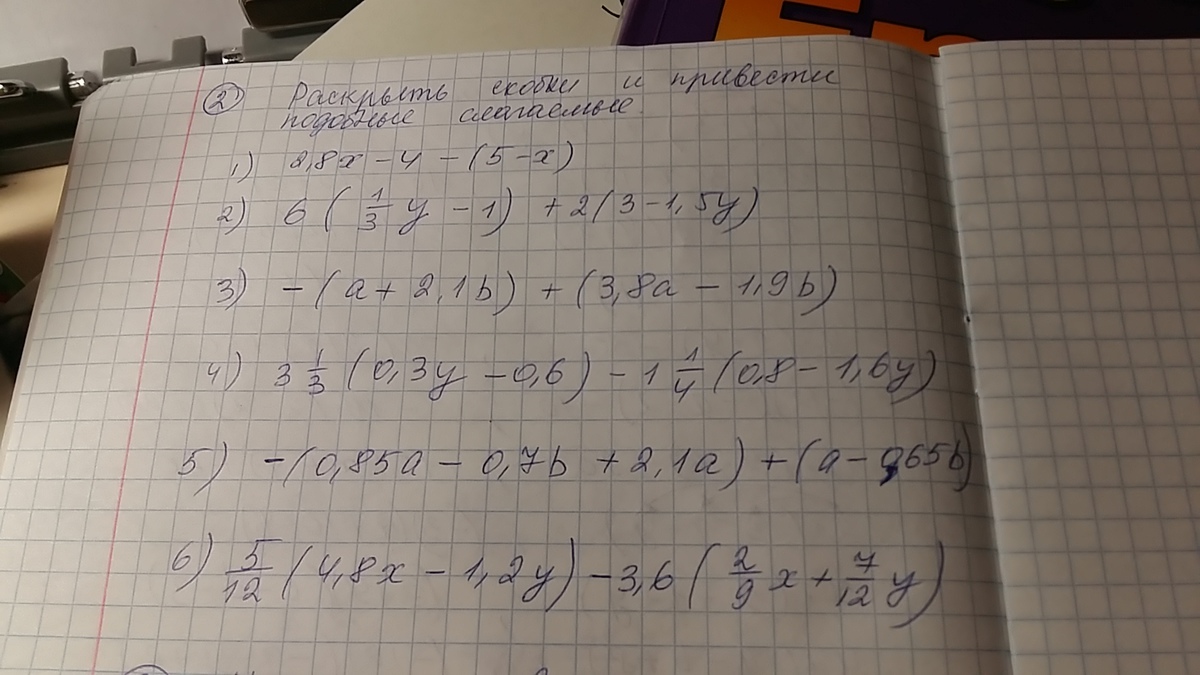 ② Раскрыть скобки и привести
подобные слагаемые.
1) 2,8x - 4 - (5 - x)
2) 6 ( 1/3 y - 1) + 2(3 - 1,5y)
3) - (a + 2,1b) + (3,8a - 1,9b)
4) 3 1/3 (0,3y - 0,6) - 1 1/4 (0,8 - 1,6y)
5) - (0,85a - 0,7b + 2,1a) + (a - 0,65b)
6) 5/12 (4,8x - 1,2y) - 3,6 ( 2/9 x + 7/12 y)